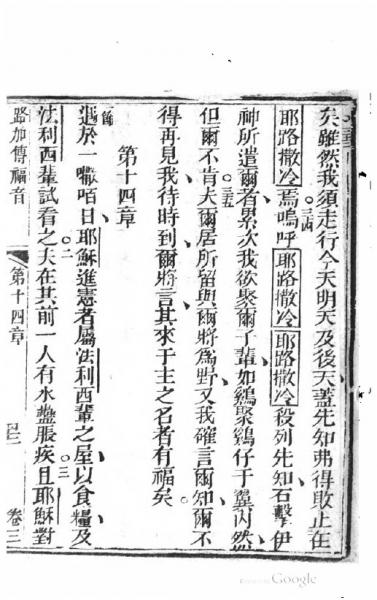 矣雖然我須走行今天明天及後天蓋先知弗得敗止在
耶路撒冷焉嗚呼耶路撒冷耶路撒冷殺列先知石擊伊
三四
神所遣爾者累次我欲聚爾子輩如鷄聚鷄仔于翼內然
但爾不肯夫爾居所留與爾將為野又我確言爾知爾不
三五
得再見我待時到爾將言其來于主之名者有福矣
第十四章
遇於一嘞咟日耶穌進憲者屬法利西輩之屋以食糧及
節
法利西輩試看之夫在其前一人有水蠱脹疾且耶穌對
二
三
路加傳福音
第十四章
卷三
Google